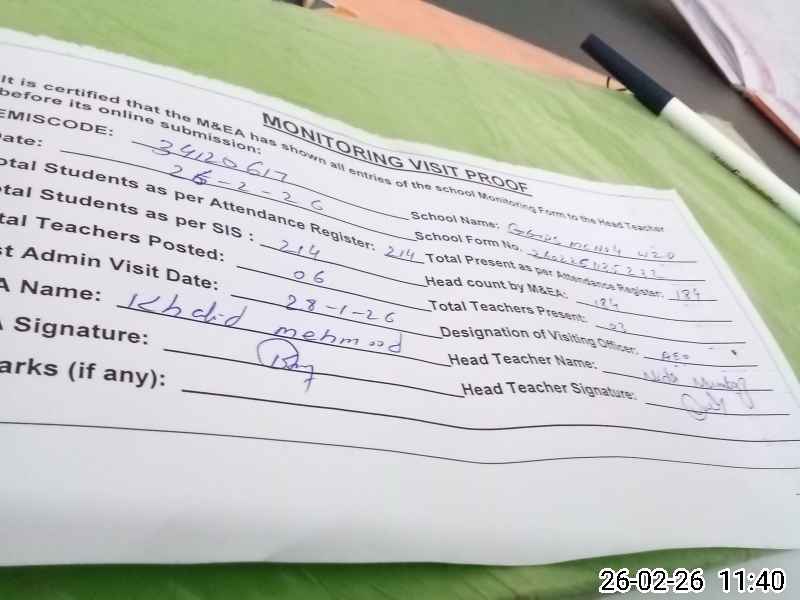 MONITORING VISIT PROOF
It is certified that the M&EA has shown all entries of the school Monitoring Form to the Head Teacher
before its online submission:
EMISCODE: 34120617 School Name:
Date: 26-2-26 School Form No.
otal Students as per Attendance Register: 214 Total Present as per Attendance Register: 184
otal Students as per SIS : 214 Head count by M&EA: 184
tal Teachers Posted: 06 Total Teachers Present: 03
st Admin Visit Date: 28-1-26 Designation of Visiting Officer: AEO
A Name: Khalid mehmood Head Teacher Name:
A Signature: Head Teacher Signature:
arks (if any):
26-02-26 11:40